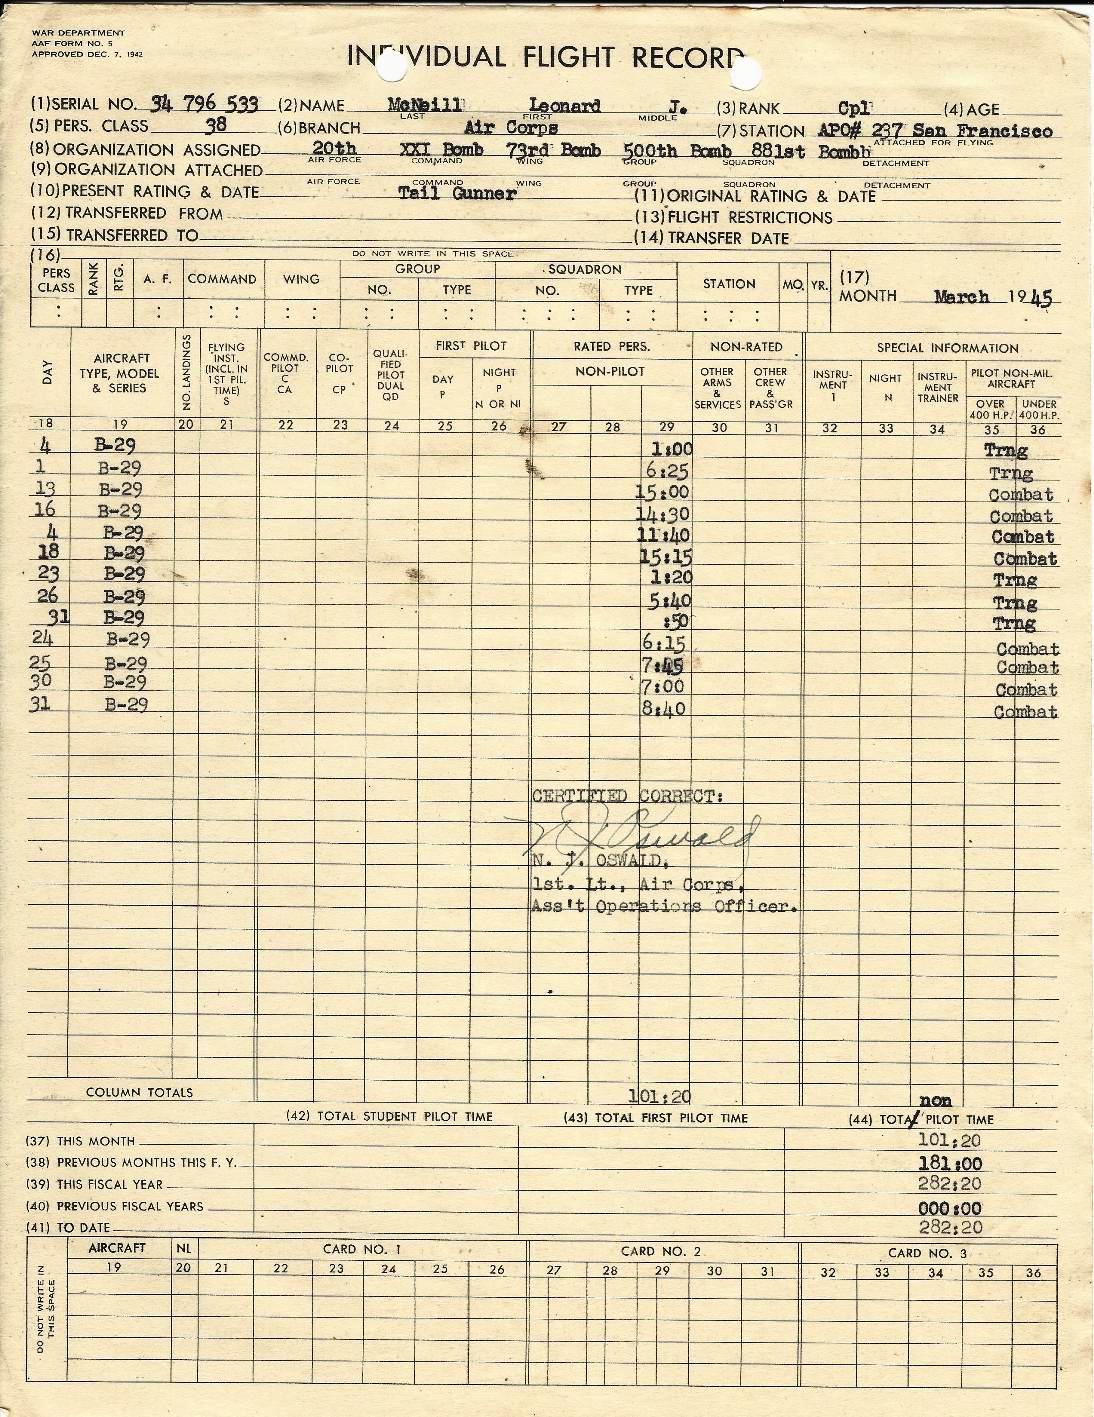 WAR DEPARTMENT
AAF FORM NO. 5
APPROVED DEC. 7, 1942
INDIVIDUAL FLIGHT RECORD
(1) SERIAL NO. 34 796 533 (2) NAME McNeill Leonard J. (3) RANK Cpl (4) AGE
LAST FIRST MIDDLE
(5) PERS. CLASS 38 (6) BRANCH Air Corps (7) STATION APO# 237 San Francisco
(8) ORGANIZATION ASSIGNED 20th XXI Bomb 73rd Bomb 500th Bomb 881st Bombb ATTACHED FOR FLYING
AIR FORCE COMMAND WING GROUP SQUADRON DETACHMENT
(9) ORGANIZATION ATTACHED
AIR FORCE COMMAND WING GROUP SQUADRON DETACHMENT
(10) PRESENT RATING & DATE Tail Gunner (11) ORIGINAL RATING & DATE
(12) TRANSFERRED FROM (13) FLIGHT RESTRICTIONS
(15) TRANSFERRED TO (14) TRANSFER DATE
(16) DO NOT WRITE IN THIS SPACE
PERS CLASS RANK RTG. A. F. COMMAND WING GROUP NO. TYPE SQUADRON NO. TYPE STATION MO. YR. (17) MONTH March 1945
DAY AIRCRAFT TYPE, MODEL & SERIES NO. LANDINGS FLYING INST. (INCL. IN 1ST PIL. TIME) S COMMD. PILOT C CA CO-PILOT CP QUALI-FIED PILOT DUAL QD FIRST PILOT DAY P NIGHT P N OR NI RATED PERS. NON-PILOT NON-RATED OTHER ARMS & SERVICES OTHER CREW & PASS'GR SPECIAL INFORMATION INSTRU-MENT I NIGHT N INSTRU-MENT TRAINER PILOT NON-MIL. AIRCRAFT OVER 400 H.P. UNDER 400 H.P.
18 19 20 21 22 23 24 25 26 27 28 29 30 31 32 33 34 35 36
4 B-29 1:00 Trng
1 B-29 6:25 Trng
13 B-29 15:00 Combat
16 B-29 14:30 Combat
4 B-29 11:40 Combat
18 B-29 15:15 Combat
23 B-29 1:20 Trng
26 B-29 5:40 Trng
31 B-29 :50 Trng
24 B-29 6:15 Combat
25 B-29 7:45 Combat
30 B-29 7:00 Combat
31 B-29 8:40 Combat
CERTIFIED CORRECT:
N J Oswald
N. J. OSWALD,
1st. Lt., Air Corps,
Ass't Operations Officer.
COLUMN TOTALS 101:20 non
(42) TOTAL STUDENT PILOT TIME (43) TOTAL FIRST PILOT TIME (44) TOTAL PILOT TIME
(37) THIS MONTH 101:20
(38) PREVIOUS MONTHS THIS F. Y. 181:00
(39) THIS FISCAL YEAR 282:20
(40) PREVIOUS FISCAL YEARS 000:00
(41) TO DATE 282:20
DO NOT WRITE IN THIS SPACE
AIRCRAFT NL CARD NO. 1 CARD NO. 2 CARD NO. 3
19 20 21 22 23 24 25 26 27 28 29 30 31 32 33 34 35 36